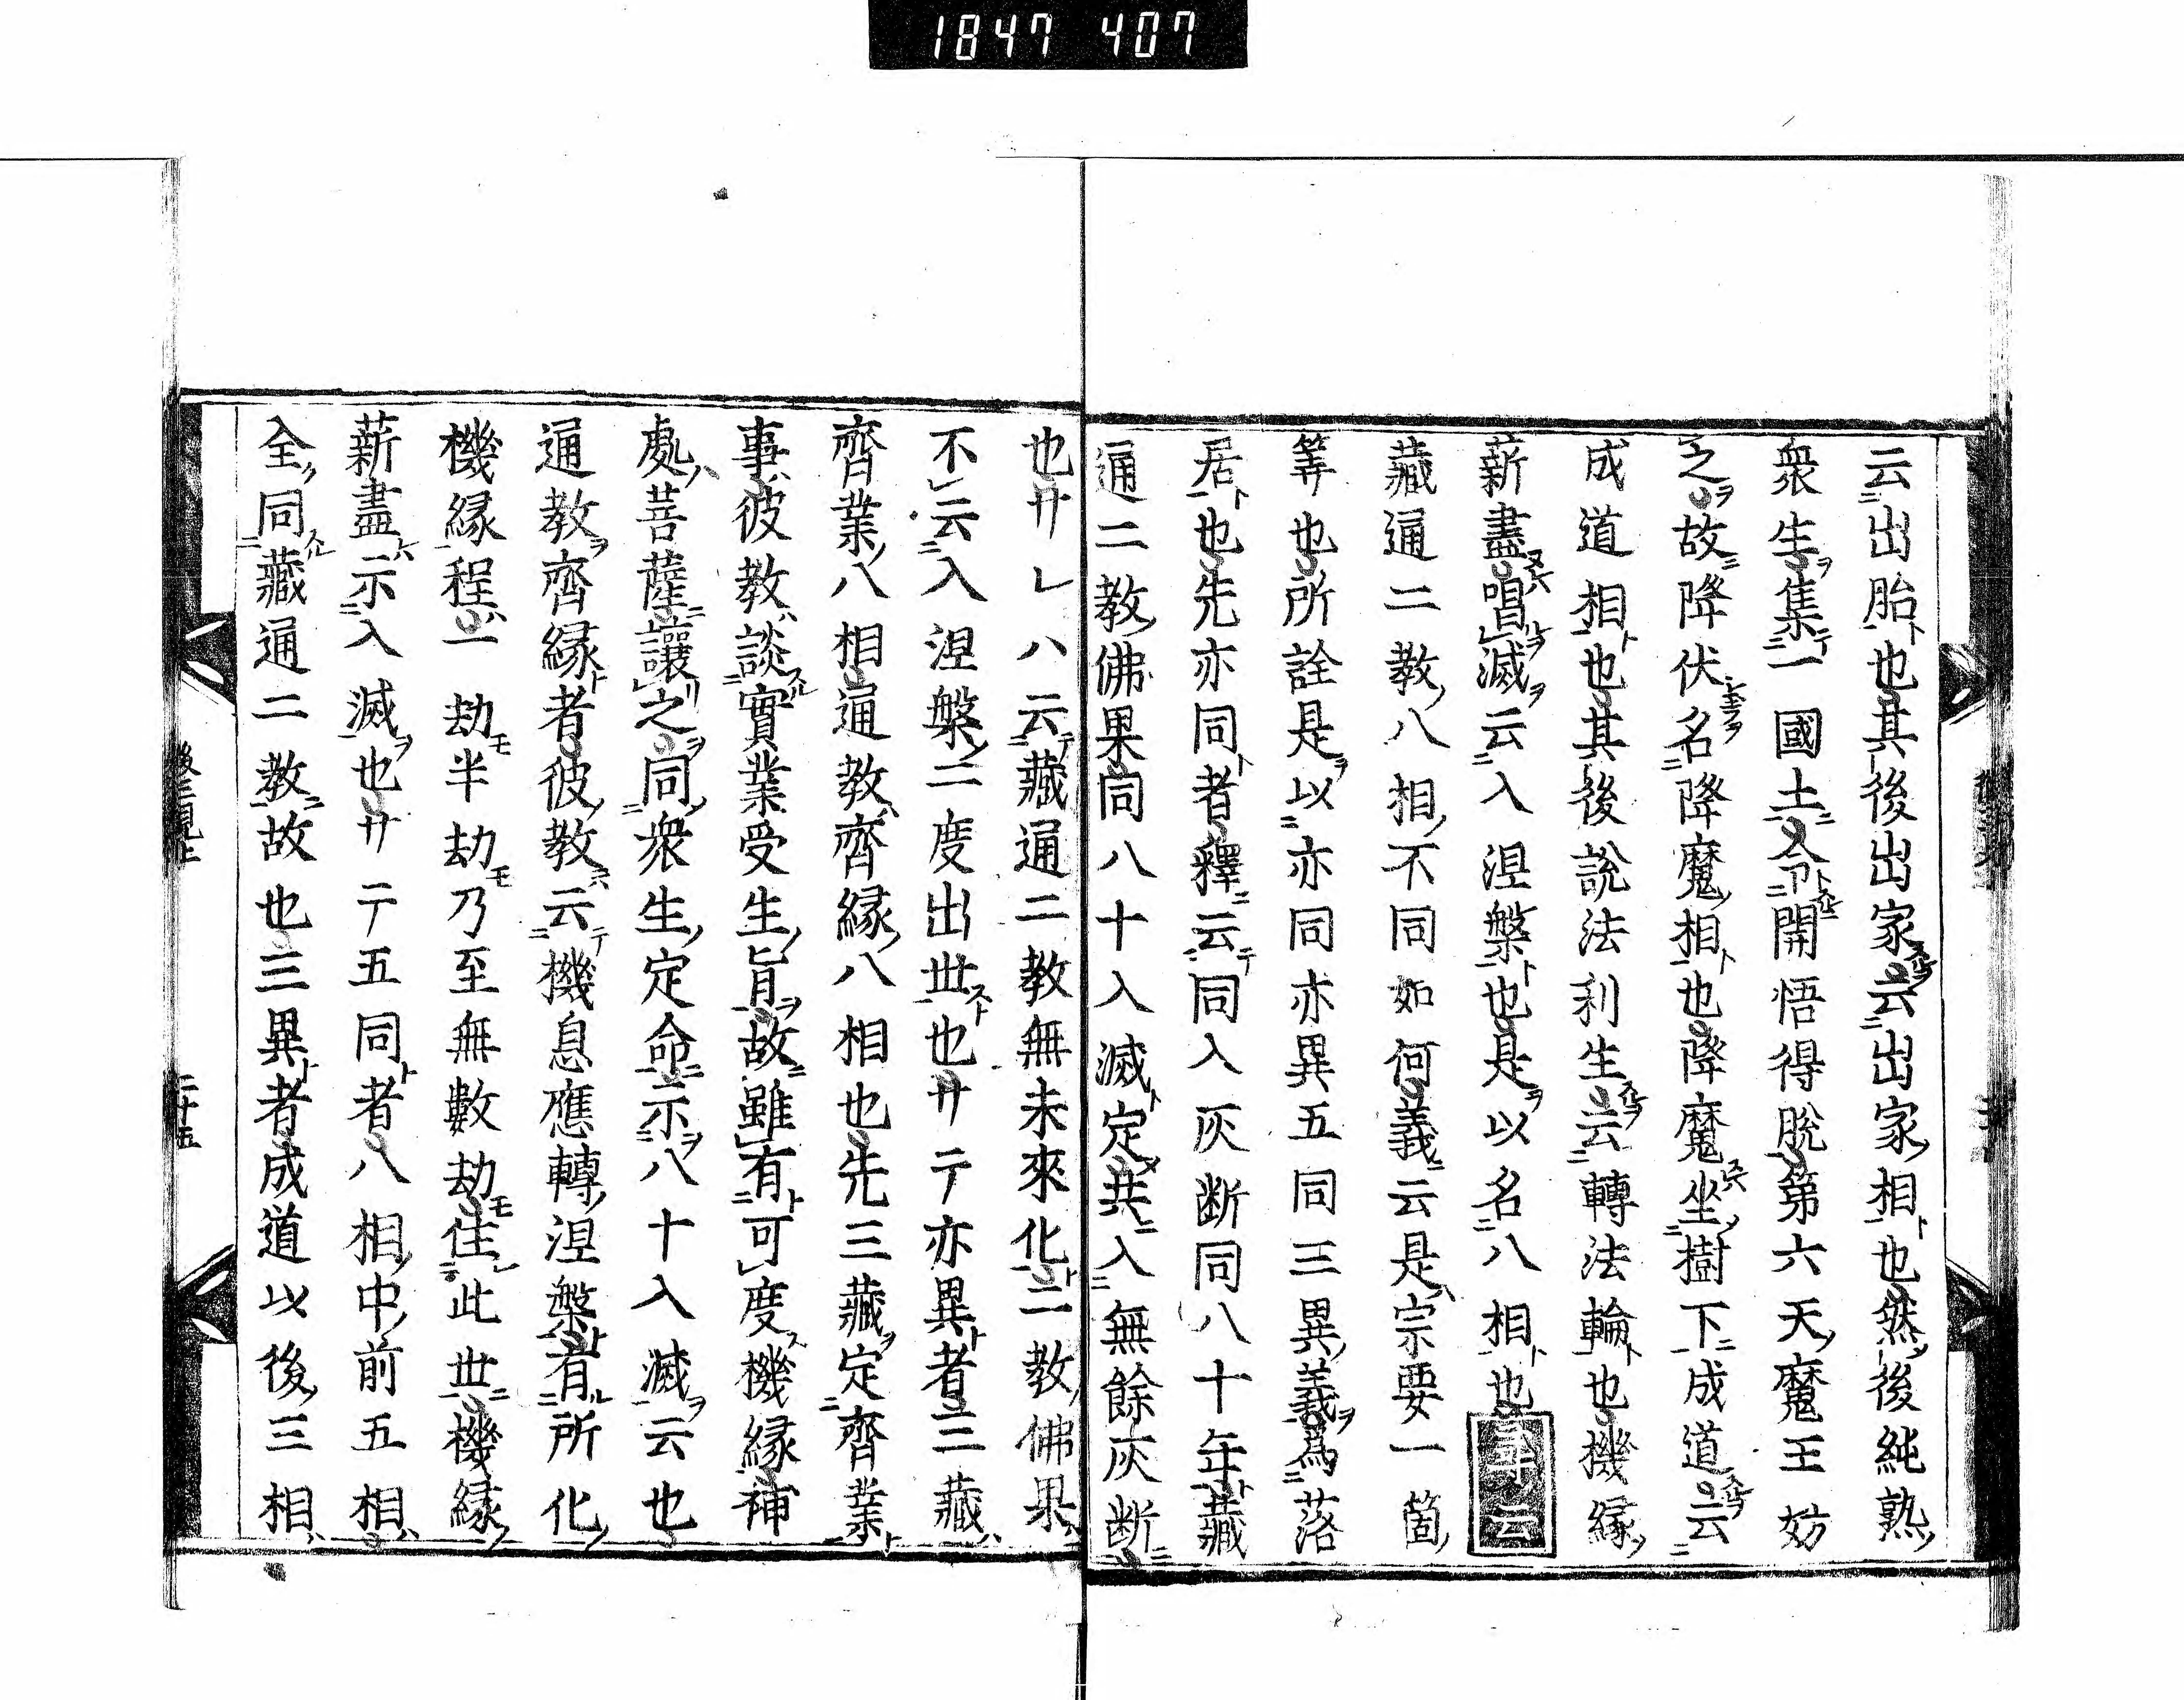 1847 407
云出胎也其後出家云出家相也然後純熟
衆生集一國土令開悟得脫第六天魔王妨
之故降伏名降魔相也降魔坐樹下成道云
成道相也其後說法利生云轉法輪也機緣
薪盡唱滅云入涅槃也是以名八相也事云
藏通二教八相不同如何義云是宗要一箇
筭也所詮是以亦同亦異五同三異義爲落
居也先亦同者釋云同入灰断同八十年藏
通二教佛果同八十入滅定共入無餘灰断
也サレハ云藏通二教無未來化二教佛果
不云入涅槃二度出世也サテ亦異者三藏
齊業八相通教齊緣八相也先三藏定齊業
事彼教談實業受生旨故雖有可度機緣補
處菩薩讓之同衆生定命示八十入滅云也
通教齊緣者彼教云機息應轉涅槃有所化
機緣程一劫半劫乃至無數劫住此世機緣
薪盡示入滅也サテ五同者八相中前五相
全同藏通二教故也三異者成道以後三相
二十五